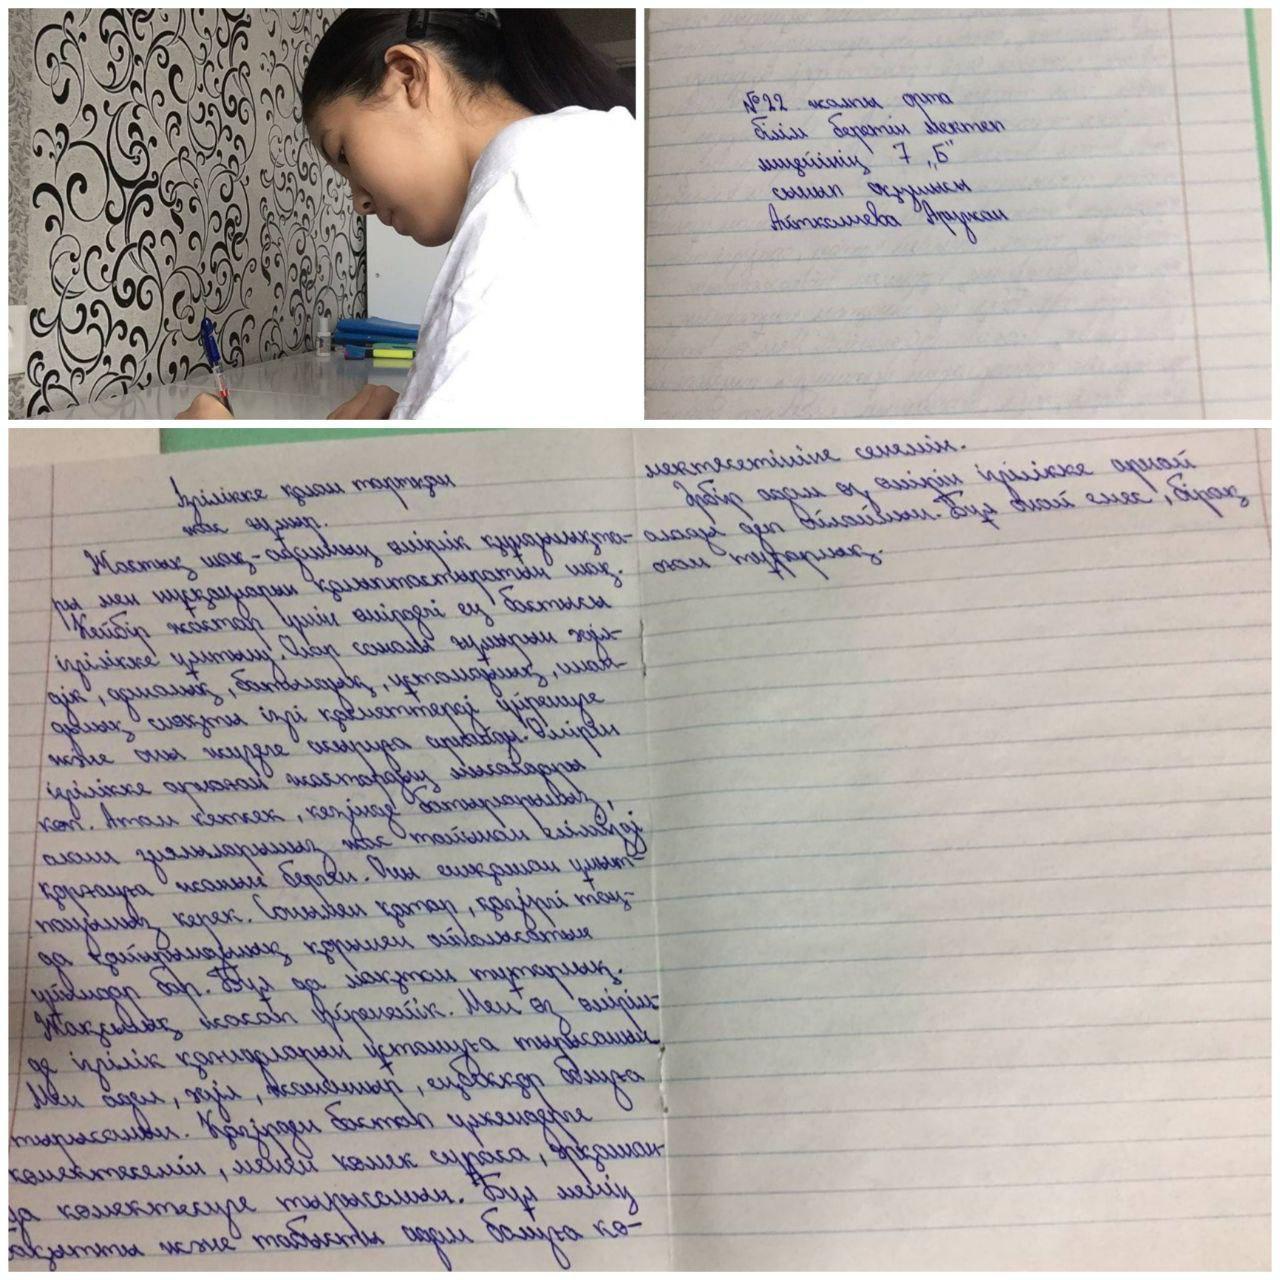 №22 жалпы орта
білім беретін мектеп
лицейінің 7 „Б"
сынып оқушысы
Айткалиева Аружан
Ізгілікке қадам тартқан
жас ғұмыр.
Жастық шақ-адамның өмірлік құндылықта-
ры мен нұсқаларын қалыптастыратын шақ.
Кейбір жастар үшін өмірдегі ең бастысы
ізгілікке ұмтылу. Олар саналы ғұмырын әділ-
дік, адалдық, батылдық, ұстамдылық, шын-
дылық сияқты ізгі қасиеттерді үйренуге
және оны жүзеге асыруға арнайды. Өмірін
ізгілікке арнаған жастардың мысалдары
көп. Атап кетсек, кезінде батырларымыз,
ағам зиялыларымыз жас тайынбай елімізді
қорғауға жанын берген. Оны ешқашан ұмыт-
пауымыз керек. Сонымен қатар, қазіргі таң-
да қайырымдылық қорымен айналысатын
ұйымдар бар. Бұл да мақтан тұтарлық.
Жақсылық жасап үйренейік. Мен өз өмірім-
де ізгілік қағидаларын ұстануға тырысамын.
Мен адал, әділ, жанашыр, еңбекқор болуға
тырысамын. Қазірден бастап үлкендерге
көмектесемін, менен көмек сұраса, әрқашан-
да көмектесуге тырысамын. Бұл менің
бақытты және табысты адам болуға кө-
мектесетініне сенемін.
Әрбір адам өз өмірін ізгілікке арнай
алады деп ойлаймын. Бұл оңай емес, бірақ
оған тұрарлық.